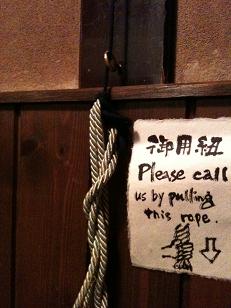 御用紐
Please call
us by pulling
this rope.